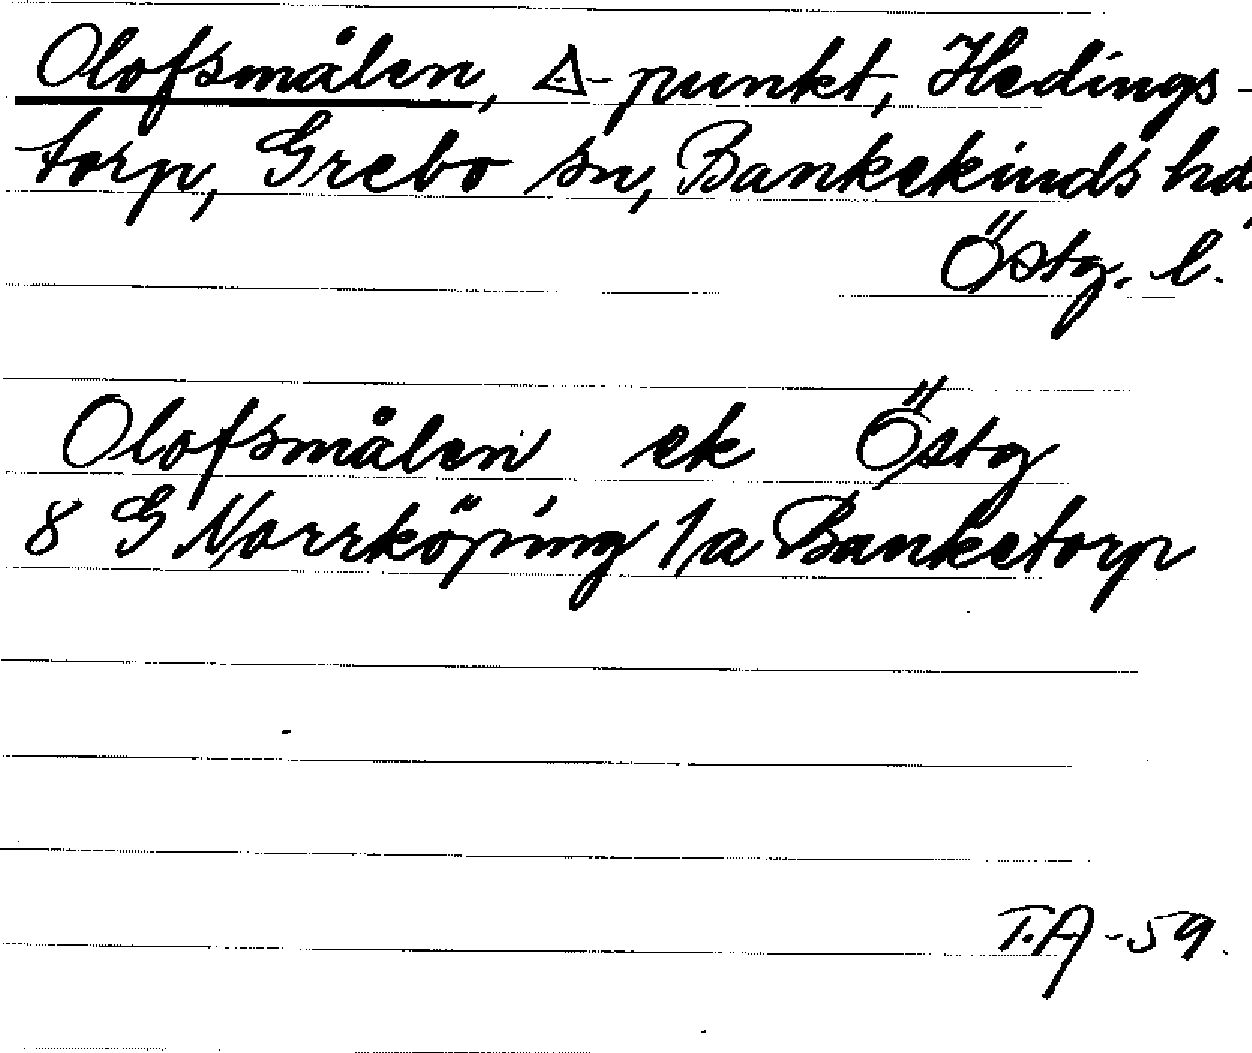 Olofsmålen, △-punkt, Hedings-
torp, Grebo sn, Bankekinds hd.
Östg. l.
Olofsmålen ek Östg
8 G Norrköping 1a Banketorp
T.A-59.